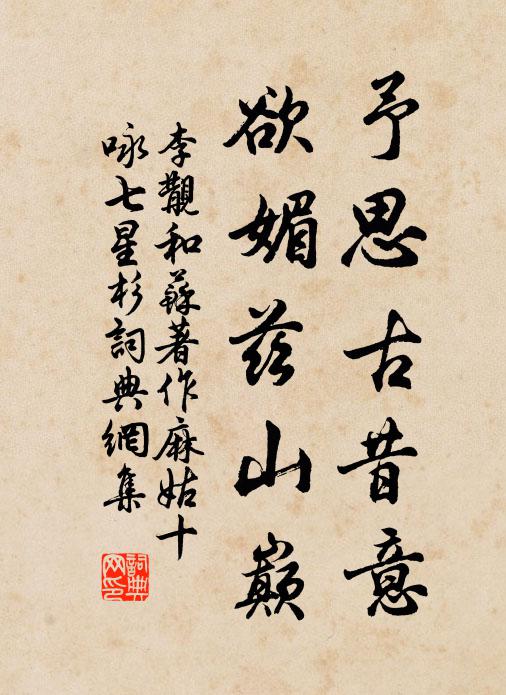 予思古昔意
欲媚茲山巔
李覯和蘇著作麻姑十
咏七星杉詞典網集
詞典
网印